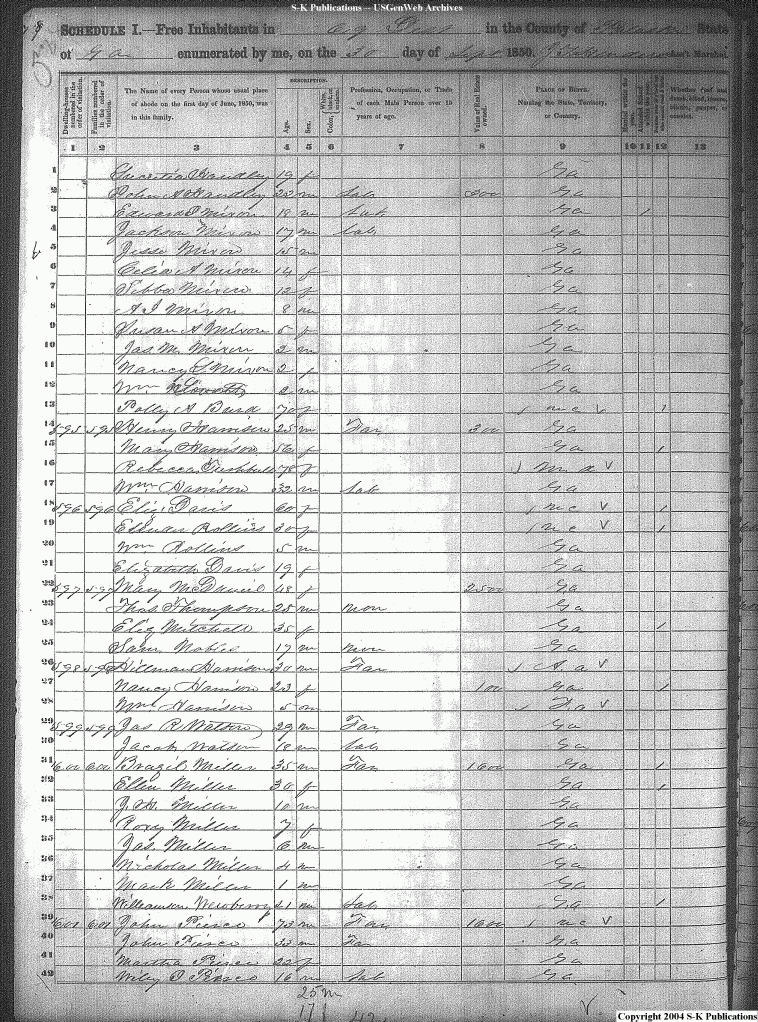 S-K Publications – USGenWeb Archives
SCHEDULE I.—Free Inhabitants in in the County of Pulaski State
of Ga enumerated by me, on the 30 day of Sept 1850. Ass't Marshal.
DESCRIPTION.
Dwelling-houses numbered in the order of visitation. Families numbered in the order of visitation. The Name of every Person whose usual place of abode on the first day of June, 1850, was in this family. Age. Sex. Color, White, black, or mulatto. Profession, Occupation, or Trade of each Male Person over 15 years of age. Value of Real Estate owned. PLACE OF BIRTH. Naming the State, Territory, or Country. Married within the year. Whether deaf and dumb, blind, insane, idiotic, pauper, or convict.
1 2 3 4 5 6 7 8 9 10 11 12 13
1 Handley 19 f Ga
2 John A Handley 22 m Lab Ga
3 Edward Mixon 18 m Lab Ga 1
4 Jackson Mixon 17 m Lab Ga
5 Jesse Mixon 15 m Ga
6 Celia A Mixon 14 f Ga
7 Mixon 12 f Ga
8 A J Mixon 8 m Ga
9 Susan A Mixon 5 f Ga
10 Jas. M. Mixon 2 m Ga
11 Nancy S Mixon 2 f Ga
12 Wm 2 m Ga
13 Polly A 70 f N C 1
14 595 595 Henry Harrison 25 m Far 300 Ga
15 Mary Harrison 56 f Ga 1
16 Rebecca 78 f
17 Wm Harrison 32 m Lab Ga
18 596 596 Eliz. Davis 60 f N C 1
19 Rollins 30 f N C 1
20 Wm Rollins 5 m Ga
21 Elizabeth Davis 19 f Ga
22 597 597 Mary McDaniel 48 f 2500 Ga
23 Thos. Thompson 25 m non Ga
24 Eliz Mitchell 35 f Ga 1
25 Sam 17 m non Ga
26 598 598 Hillman Harrison 30 m Far
27 Nancy Harrison 23 f 100 Ga 1
28 Wm Harrison 5 m
29 599 599 Jas R Watson 29 m Far Ga
30 Jacob Watson 18 m Lab Ga
31 600 600 Brazil Miller 35 m Far 1600 Ga 1
32 Ellen Miller 30 f Ga 1
33 J. H. Miller 10 m Ga
34 Roxy Miller 7 f Ga
35 Jas. Miller 6 m Ga
36 Nicholas Miller 4 m Ga
37 Mark Miller 1 m Ga
38 Williamson Newberry 21 m Lab Ga 1
39 601 601 John 73 m Far 1600 N C
40 John 33 m Far Ga
41 Martha 22 f Ga
42 Wiley 16 m Lab Ga
25 m
17 f 42
Copyright 2004 S-K Publications